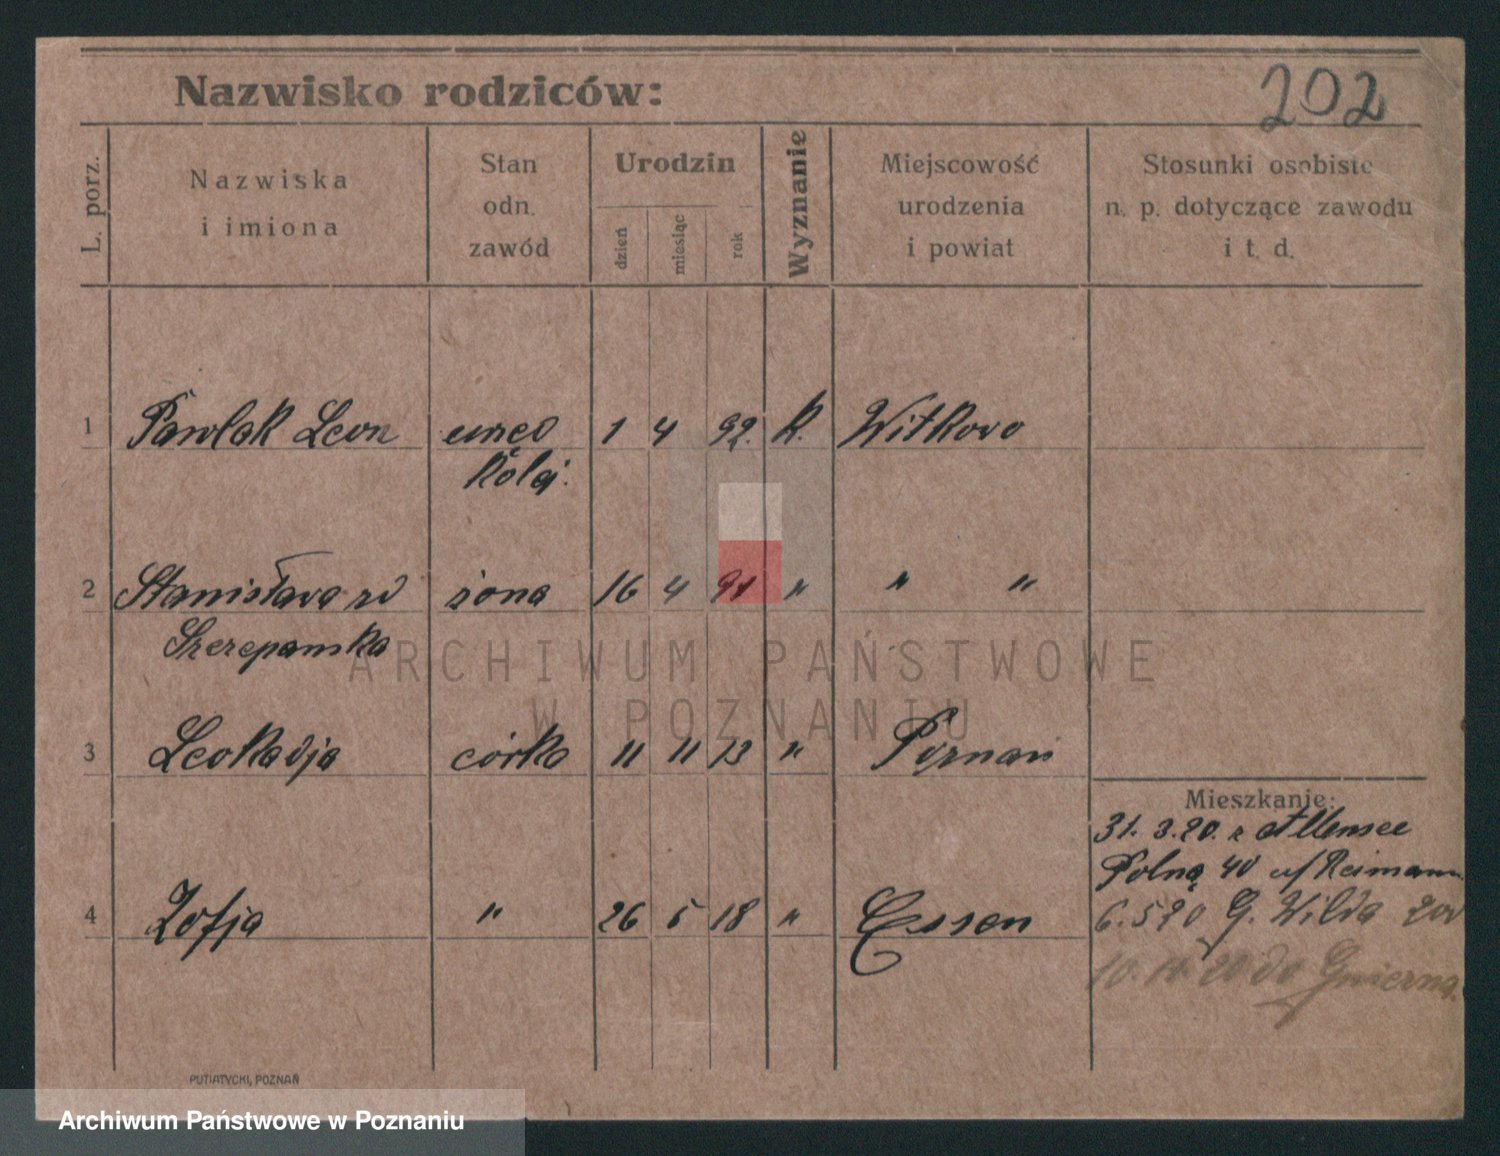 Nazwisko rodziców:
202
L. porz.
Nazwiska
i imiona
Stan
odn.
zawód
Urodzin
dzień
miesiąc
rok
Wyznanie
Miejscowość
urodzenia
i powiat
Stosunki osobiste
n. p. dotyczące zawodu
i t. d.
1 Pawlak Leon 1 4 92. K. Witkowo
Kolej.
2 Stanisława zd żona 16 4 91 " " "
Szczepańska
ARCHIWUM PAŃSTWOWE
W POZNANIU
3 Leokadja córka 11 11 13 " Poznań
Mieszkanie:
31. 3.20. z
Polną 40 Reimann
4 Zofja " 26 5 18 " Essen
6. 5 20 G. Wilda
20 do
PUTIATYCKI, POZNAŃ
Archiwum Państwowe w Poznaniu